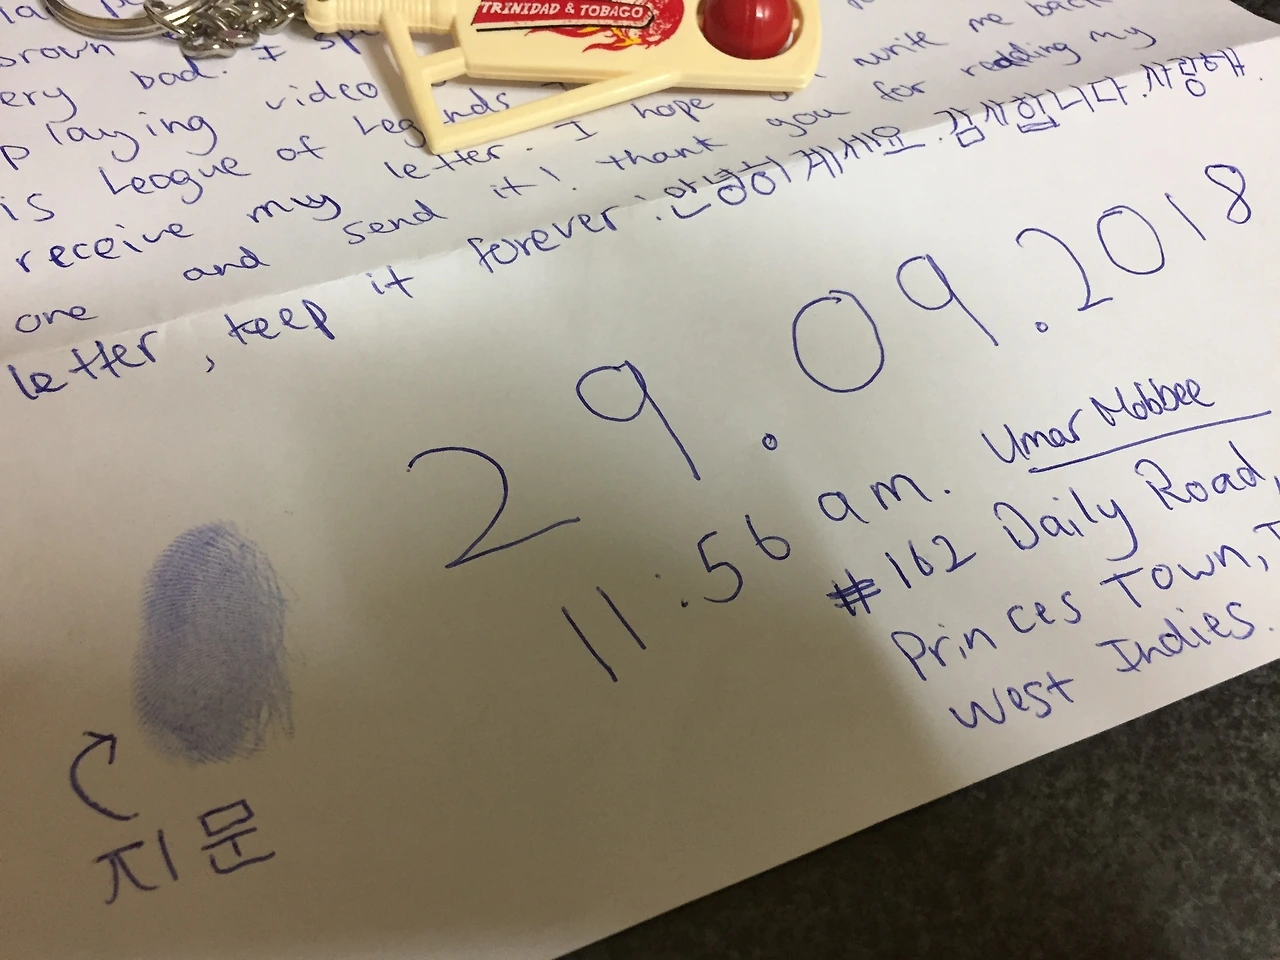 TRINIDAD & TOBAGO
brown
ery bad. I
playing video
is League of Legends write me back
receive my letter. I hope
one and send it! thank you for reading my
letter, keep it forever! 안녕히 계세요. 감사합니다. 사랑해.
29.09.2018
11:56 am.
Umar Mobbee
#162 Daily Road,
Princes Town,
West Indies.
지문